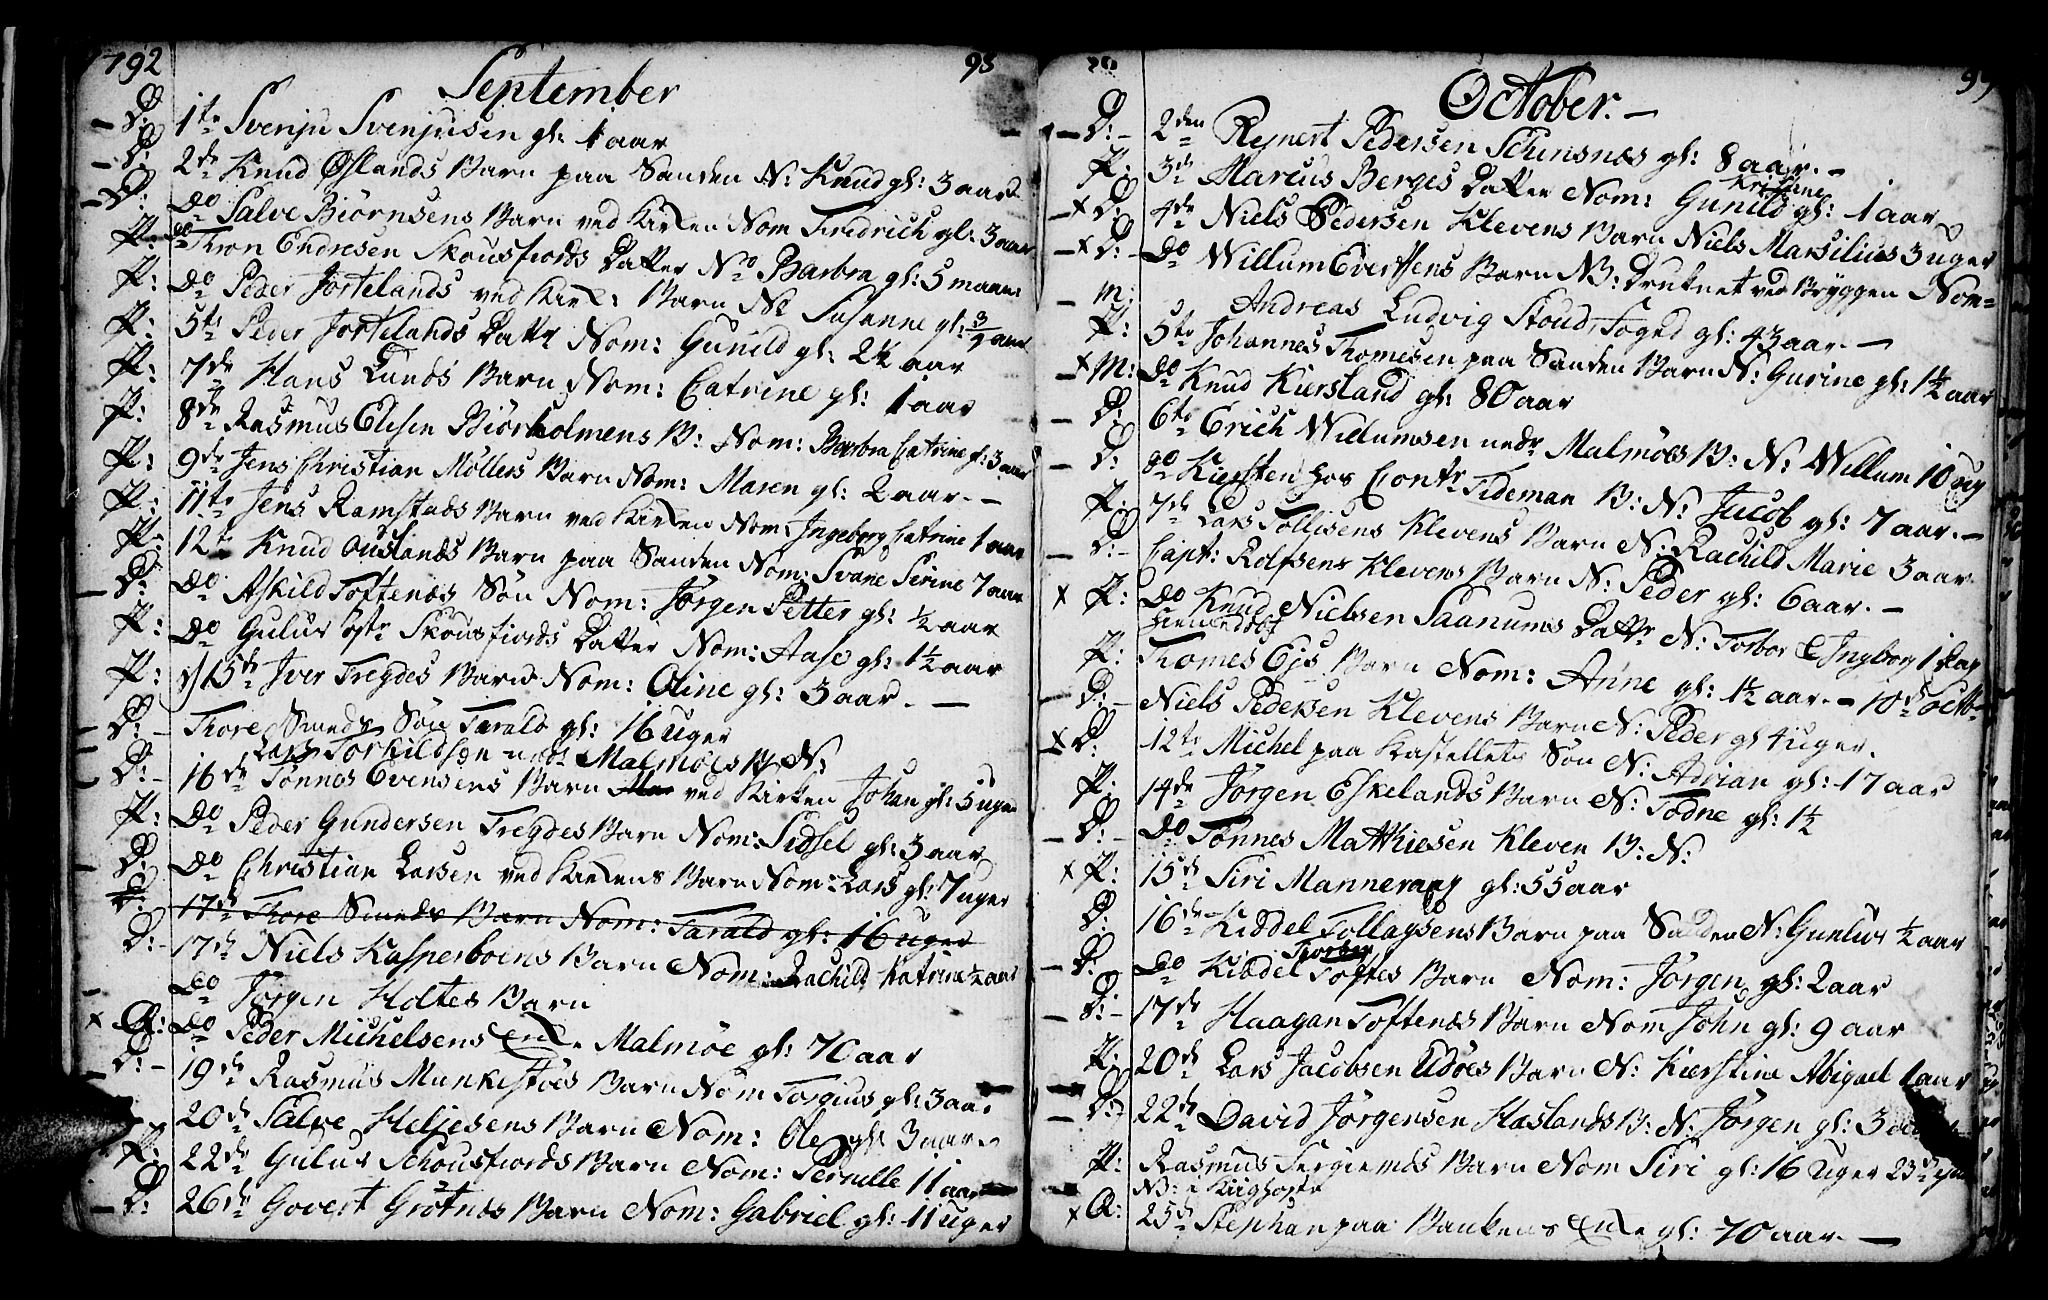 1792
98
September
D: 1te Svenju Svenjusen gl: 1 aar
D: 2de Knud Øslands Barn paa Sanden N: Knud gl: 3 aar
D: do Salve Biørnsens Barn ved Kirken Nom Fredrich gl: 3 aar
P: do Thron Endresen Skousfiords Datter No Barbra gl: 5 maan
P: do Peder Jortelands ved Kirk: Barn No Susanne gl: 3/4 aar
P: 5te Peder Jortelands Dattr Nom: Gunild gl: 2½ aar
P: 7de Hans Lunds Barn Nom: Catrine gl: 1 aar
P: 8de Rasmus Elisen Biørholmens B: Nom: Barbra Catrine gl: 3 aar
P: 9de Jens Christian Møllers Barn Nom: Maren gl: 2 aar. -
P: 11te Jens Ramstads Barn ved Kirken Nom: Ingeborg Catrine 1 aar
P: 12te Knud Ouslands Barn paa Sanden Nom: Svane Serine 7 aar
D: do Askild Toftenæs Søn Nom: Jørgen Petter gl: ½ aar
P: do Gulus Østr Skousfiords Datter Nom: Aase gl: 1½ aar
P: 15de Iver Tregdes Barn Nom: Oline gl: 3 aar. -
D: - Thore Smeds Søn Tarald gl: 16 Uger
Lars Torkildsen Malmøes B: N:
D: - 16de Tønnes Evensens Barn ved Kirken Johan gl: 5 uger
P: do Peder Gundersen Tregdes Barn Nom: Sidsel gl: 3 aar
D: do Christian Larsen ved Kirkens Barn Nom: Lars gl: 7 uger
D: 17de Thore Smeds Barn Nom: Tarald gl: 16 uger
D: - 17de Niels Kasperboens Barn Nom: Rachild Katrine ½ aar
do Jørgen Holtes Barn
x Q: do Peder Michelsens Malmøe gl: 70 aar
D: - 19de Rasmus Munkestøes Barn Nom Torgius gl: 3 aar
20de Salve Heljesens Barn Nom: Ole gl: 3 aar
P: 22de Gulus Schousfiords Barn Nom: Pernille 11 aar
D: 26de Govert Grøtnæs Barn Nom: Gabriel gl: 11 Uger
99
October. -
D: - 2den Reinert Pedersen gl: 8 aar. -
P: 3de Marcus Berges Datter Nom: Gunild gl: 1 aar
Kristine
x D: 4de Niels Pedersen Klevens Barn Niels Marsilius 3 uger
x D: - do Willum Evertsens Barn NB: Druknet ved Bryggen Nom=
M: Andreas Ludvig Stoud, Foged gl: 43 aar. -
P: 5te Johannes Thomesen paa Sanden Barn N: Gurine gl: 1½ aar
x M: do Knud Kiersland gl: 80 aar
D: 6te Erich Willumsen nedr Malmøes B: N: Willum 10 ug
D: do Kiersten hos Contr Tideman B: N: Jacob gl: 7 aar. -
P: 7de Lars Tollisens Klevens Barn N: Rachild Marie 3 aar
D: - Capt: Rolfsens Klevens Barn N: Peder gl: 6 aar. -
x P: do Knud Nielsen Saanums Dattr N: Torbor Ingborg 1 dag
P: Thomes Ejs Barn Nom: Anne gl: 1½ aar. - 10de octb
D: - Niels Pedersen Klevens Barn N: Peder gl 4 uger.
x D: 12te Michel paa Kastellets Søn N: Adrian gl: 17 aar
P: 14de Jørgen Eskelands Barn N: Todne gl: 1½
D: - do Tønnes Matthiesen Kleven B: N:
x P: 15de Siri Manneraag gl: 55 aar
D: 16de Kiddel Tollaysens Barn paa Sanden N: Gunlus ½ aar
D: do Kiddel Toftes Barn Nom: Jørgen gl: 2 aar
D: - 17de Haagan Toftenæs Barn Nom John gl: 9 aar
P: 20de Lars Jacobsen Udøes Barn N: Kierstine Abigael 1 aar
D: 22de David Jørgensen Haslands B: N: Jørgen gl: 3
P: Rasmus Barn Nom Siri gl: 16 Uger 23de
x Q: 25de Stephan paa Bankens gl: 70 aar. -